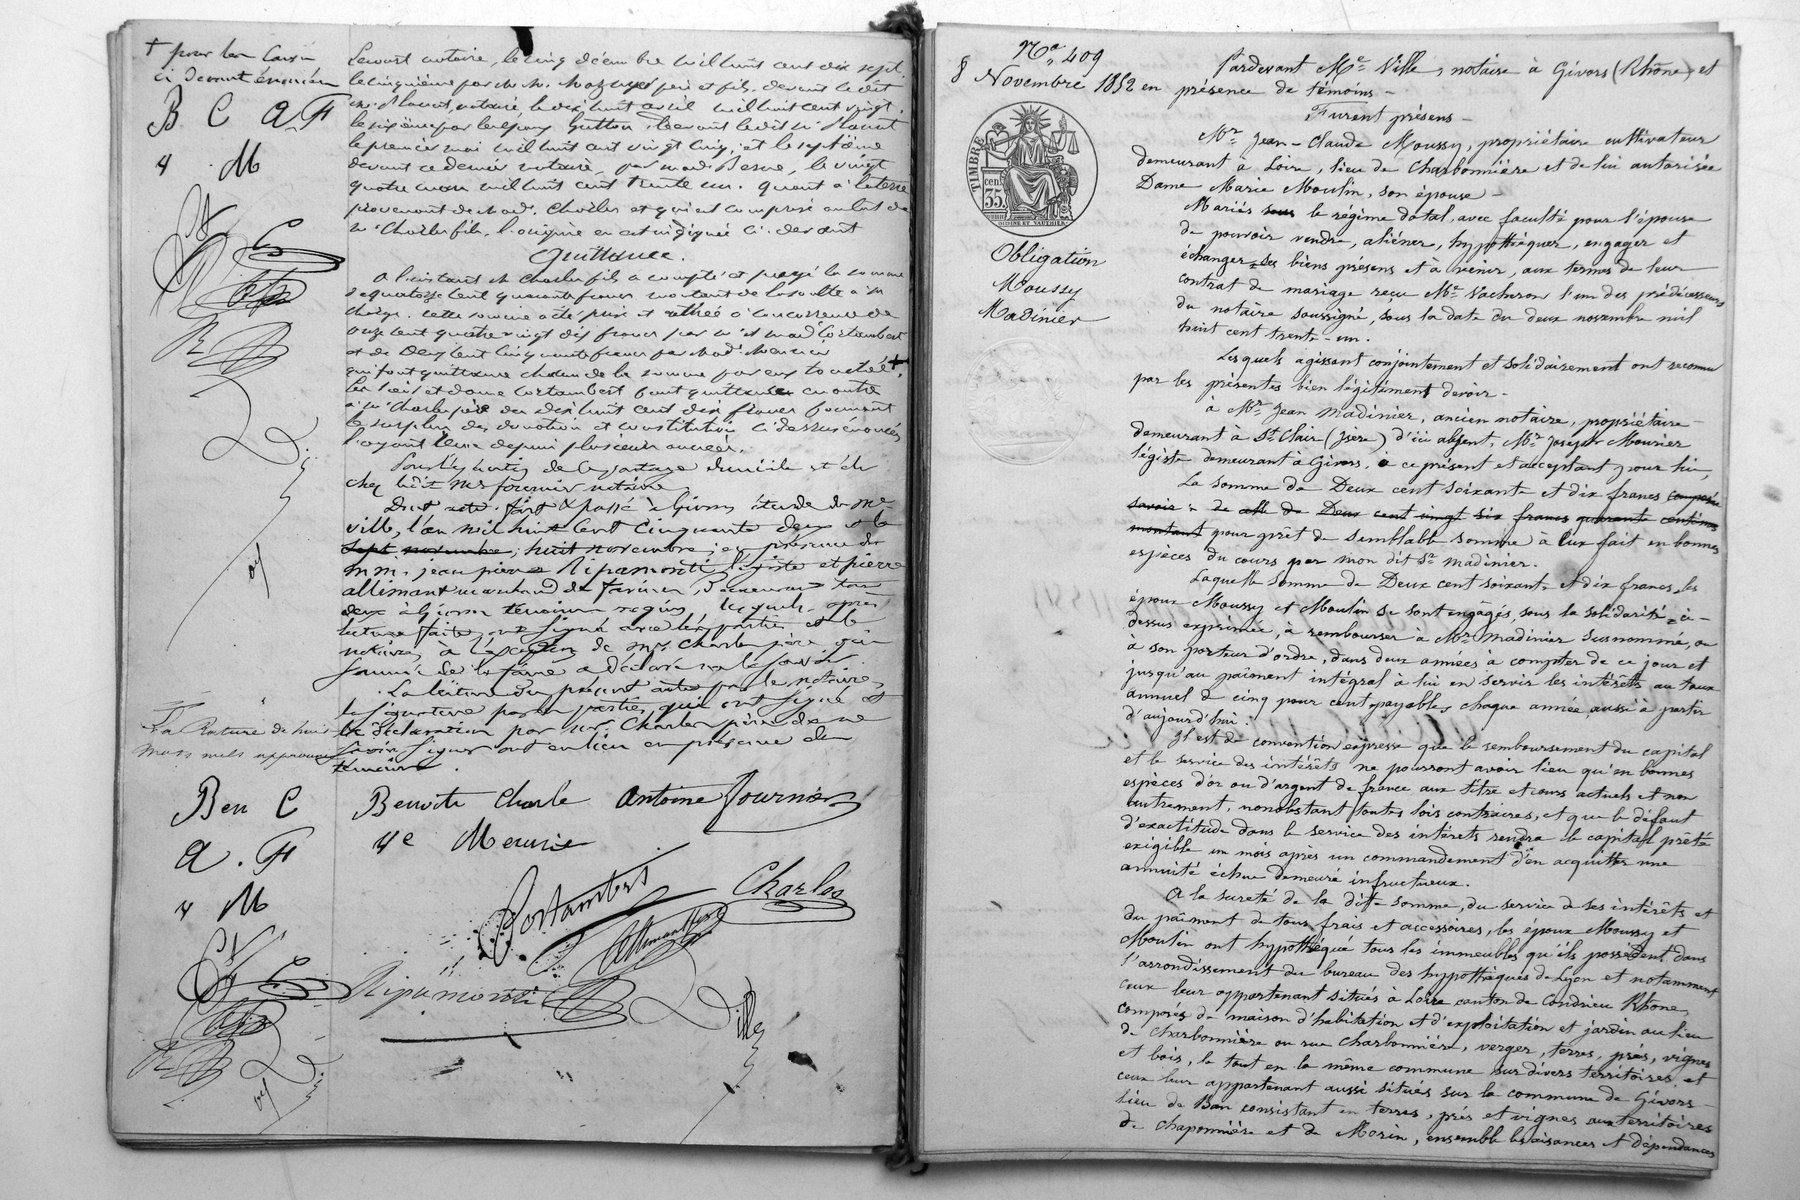 + pour leur
ci devant énoncée
B C A F
M
notaire, le cinq décembre mil huit cent dix sept,
le cinquième par M. père et fils, devant le dit
notaire, le dix huit avril mil huit cent vingt,
le sixième par
le premier mai mil huit cent vingt cinq, et le septième
devant ce dernier notaire, par le vingt
quatre mil huit cent trente un. quant à la terre
provenant de Charles et qui est compris au lot de
Mr Charles fils, l'origine en est indiquée ci-devant
Quittance.
A l'instant Mr Charles fils a compté et payé la somme
de quatorze cent quarante francs montant de la soulte à sa
charge. cette somme a été prise et retirée à concurrence de
onze cent quatre vingt dix francs par Mr et Made Cortambert
et de deux cent cinquante francs par Made
qui font quittance chacun de la somme par eux touchée +,
Les sieur et dame Cortambert font quittance en outre
à Mr Charles père des dix huit cent dix francs formant
le surplus des donation et constitution ci dessus énoncées
l'ayant reçue depuis plusieurs années.
de ce partage domicile est élu
chez ledit Me fournier notaire
Dont acte. fait & passé à Givors étude de Me
ville, l'an mil huit cent cinquante deux et le
sept novembre, huit novembre, en présence de
MM. jean pierre Ripamonti légiste et pierre
allimant marchand de farines, Demeurant tous
deux à Givors témoins requis, lesquels après
lecture faite, ont signé avec les parties et le
notaire, à l'exception de Mr Charles père qui
de le faire a déclaré ne le savoir.
La lecture du présent acte par le notaire,
la signature par les parties qui ont signé et
la déclaration par Mr Charles père de ne
savoir signer ont eu lieu en présence des
témoins.
La Rature de huit
mots nuls approuvée
Ben C
A . F
M
Benoite Charle Antoine fournier
Cortambert
Charles
Allimant
Ripamonti
Ville
No 409
8 Novembre 1852
TIMBRE
35 cent.
Obligation
Moussy
Madinier
Pardevant Me Ville, notaire à Givors (Rhône) et
en présence de témoins –
Furent présens –
Mr Jean-Claude Moussy, propriétaire cultivateur
demeurant à Loire, lieu de Charbonnière et de lui autorisée
Dame Marie Moulin, son épouse –
Mariés sous le régime dotal, avec faculté pour l'épouse
de pouvoir vendre, aliéner, hypothéquer, engager et
échanger ses biens présens et à venir, aux termes de leur
contrat de mariage reçu Me Vacheron l'un des prédécesseurs
du notaire soussigné, sous la date du deux novembre mil
huit cent trente-un.
Lesquels agissant conjointement et solidairement ont reconnu
par les présentes bien légitimement devoir –
à Mr Jean Madinier, ancien notaire, propriétaire
demeurant à St Clair (Isère) d'ici absent, Mr Joseph Mourier
légiste demeurant à Givors, à ce présent et acceptant pour lui,
La somme de Deux cent soixante et dix francs composée
savoir: de celle de Deux cent vingt six francs quarante centimes
montant pour prêt de semblable somme à eux fait en bonnes
espèces du cours par mon dit Sr Madinier.
Laquelle somme de Deux cent soixante et dix francs, les
époux Moussy et Moulin se sont engagés, sous la solidarité ci-
dessus exprimée, à rembourser à Mr Madinier susnommé, ou
à son porteur d'ordre, dans deux années à compter de ce jour et
jusqu'au paiment intégral à lui en servir les intérêts au taux
annuel de cinq pour cent payables chaque année aussi à partir
d'aujourd'hui.
Il est de convention expresse que le remboursement du capital
et le service des intérêts ne pourront avoir lieu qu'en bonnes
espèces d'or ou d'argent de france aux titre et cours actuels et non
autrement, nonobstant toutes lois contraires, et que le défaut
d'exactitude dans le service des intérêts rendra le capital prêté
exigible un mois après un commandement d'en acquitter une
annuité échue demeuré infructueux.
A la sureté de la dite somme, du service de ses intérêts et
du paîment de tous frais et accessoires, les époux Moussy et
Moulin ont hypothéqué tous les immeubles qu'ils possèdent dans
l'arrondissement du bureau des hypothèques de Lyon et notamment
ceux leur appartenant situés à Loire canton de Condrieu Rhône,
composés de maison d'habitation et d'exploitation et jardin au lieu
de Charbonnière ou rue Charbonnière, verger, terres, prés, vignes
et bois, le tout en la même commune sur divers territoires et
ceux leur appartenant aussi situés sur la commune de Givors –
lieu de Ban consistant en terres, prés et vignes aux territoires
de Chaponnière et de Morin, ensemble les aisances et dépendances